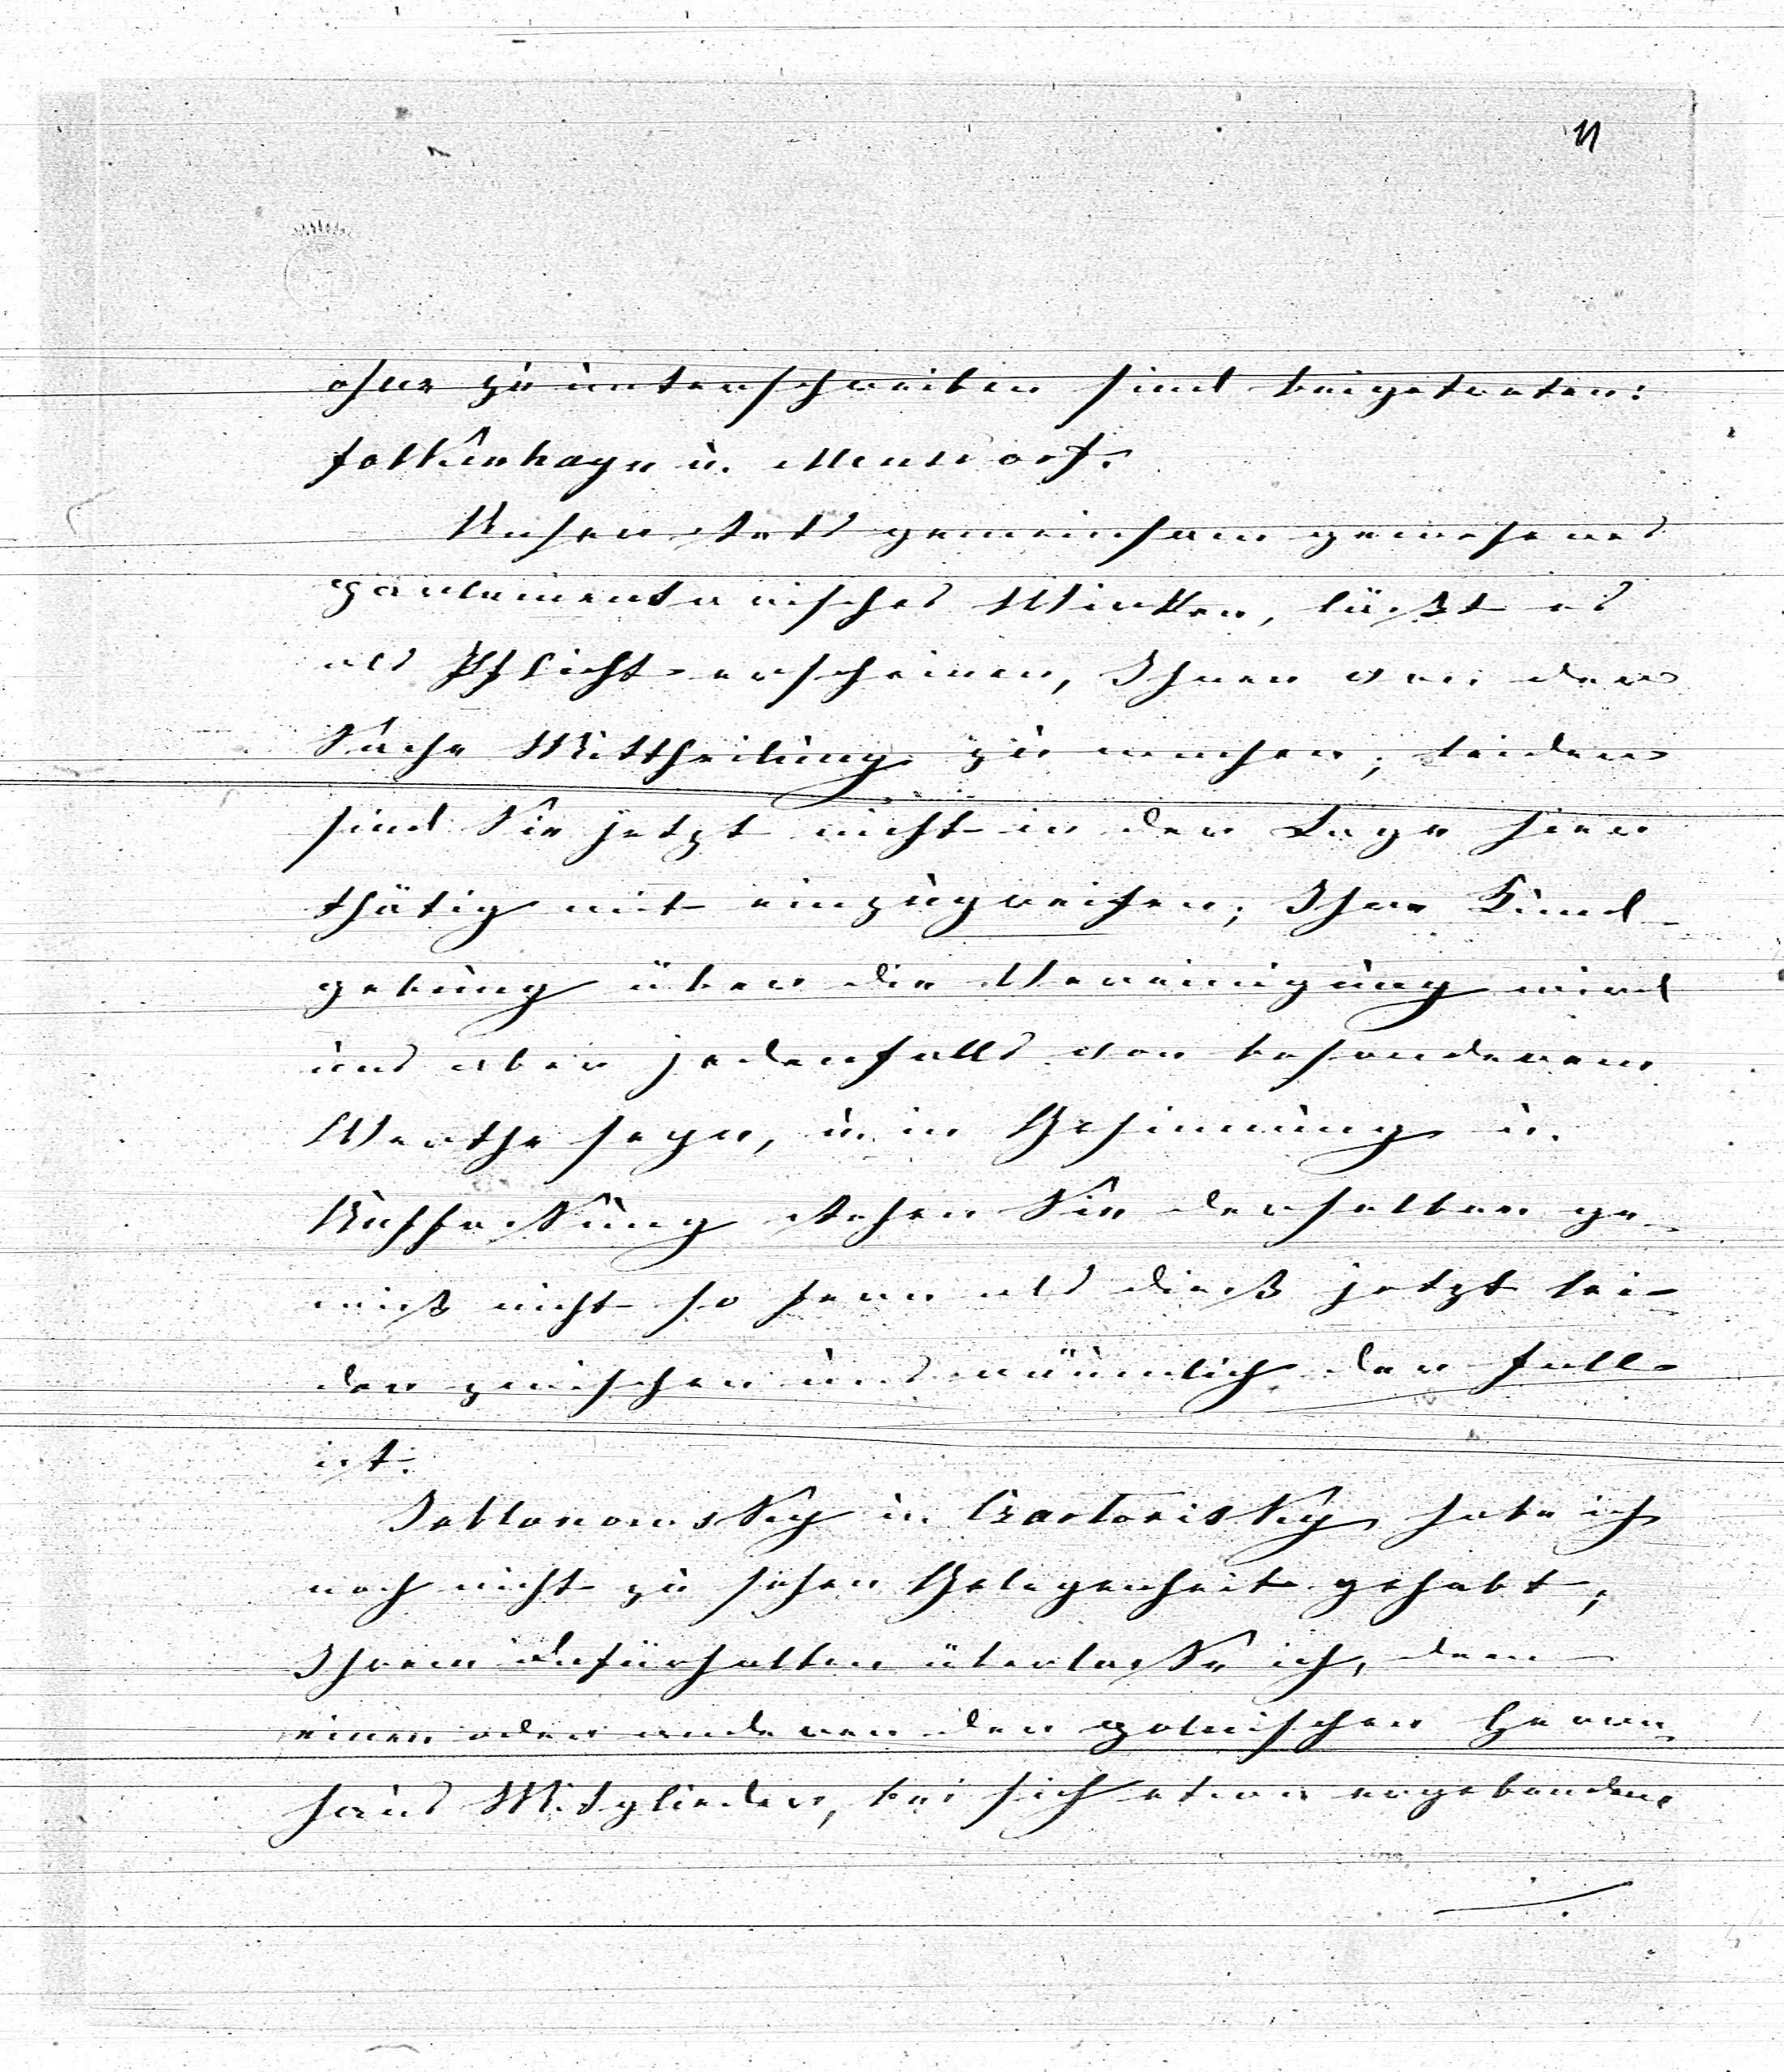 11
ohne zu unterschreiben sind beigetreten:
Falkenhayn u. Mensdorf.
Unser stets gemeinsam gewesenes
parlamentarisches Wirken, läßt es
als Pflicht erscheinen, Ihnen von der
Sache Mittheilung zu machen; leider
sind Sie jetzt nicht in der Lage hier
thätig mit einzugreifen; Ihre Kund-
gebung über die Vereinigung wird
uns aber jedenfalls von besonderem
Werthe seyn, u. in Gesinnung u.
Auffassung stehen Sie derselben ge-
wiß nicht so fern als dieß jetzt lei-
der zwischen uns räumlich der Fall
ist.
Jablonowsky u. Czartorisky habe ich
noch nicht zu sehen Gelegenheit gehabt;
Ihrem Dafürhalten überlasse ich, dem
einen oder anderen der polnischen Herrn
haus Mitglieder, bei sich etwa ergebender